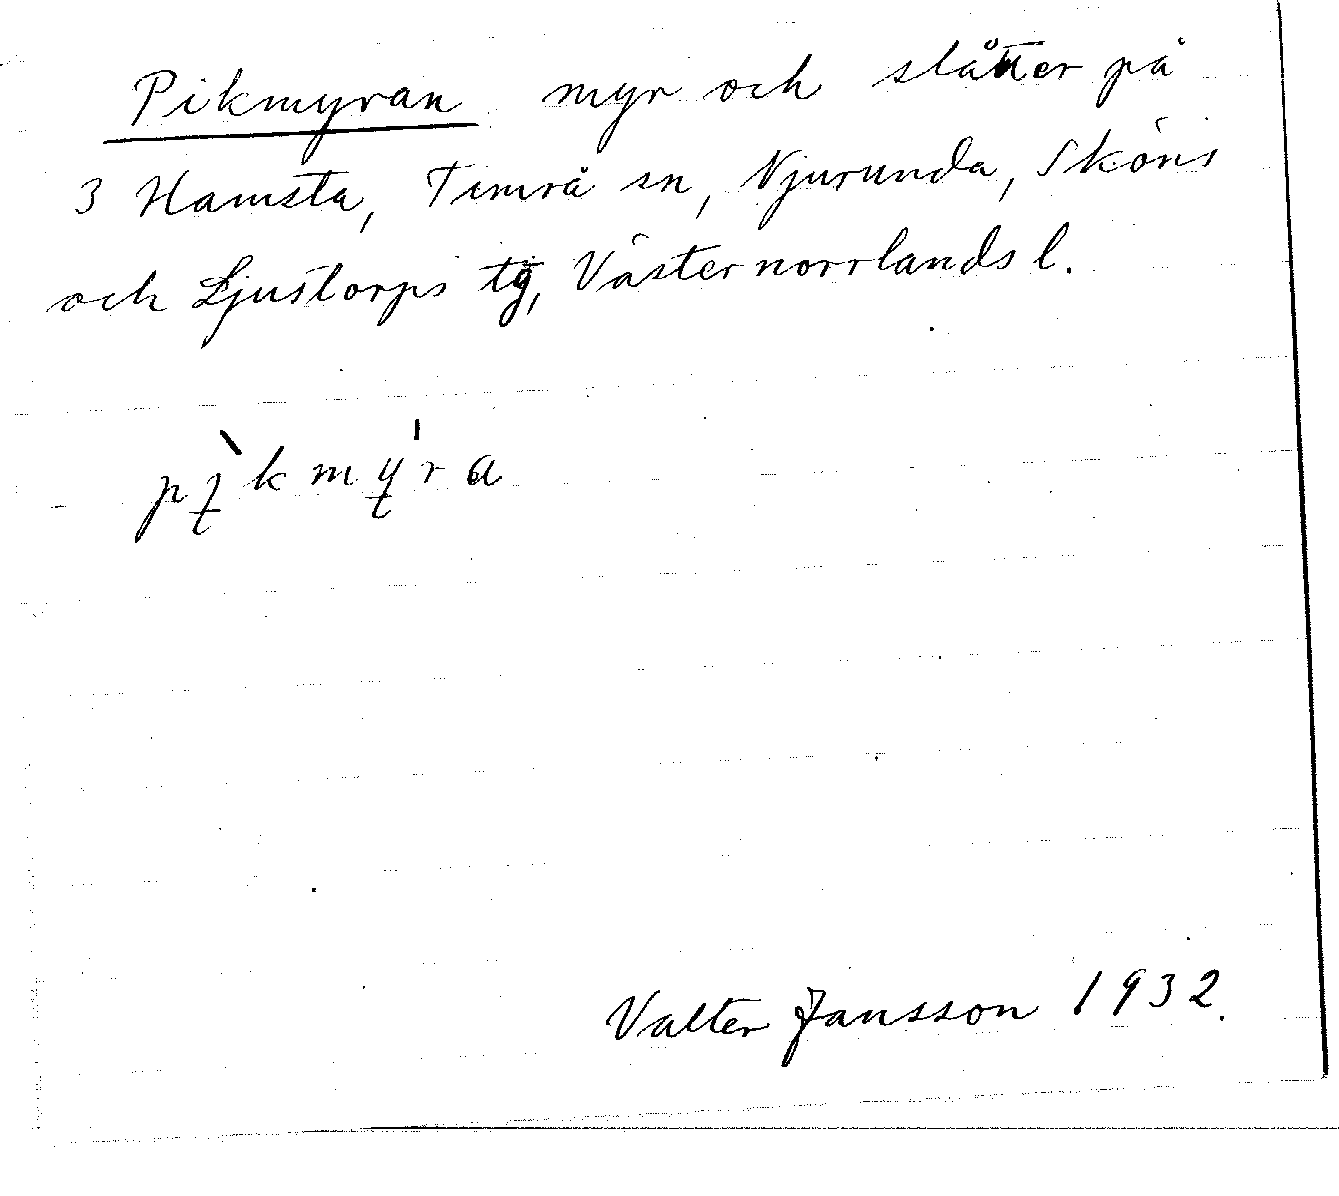 Pikmyran myr och slåtter på
3 Hamsta, Timrå sn, Njurunda, Sköns
och Ljustorps tg, Västernorrlands l.
pì̠kmý̠ra
Valter Jansson 1932.